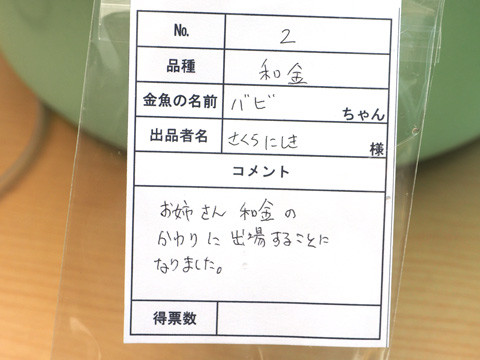 No. 2
品種 和金
金魚の名前 バビ ちゃん
出品者名 さくらにしき 様
コメント
お姉さん 和金の
かわりに 出場することに
なりました。
得票数